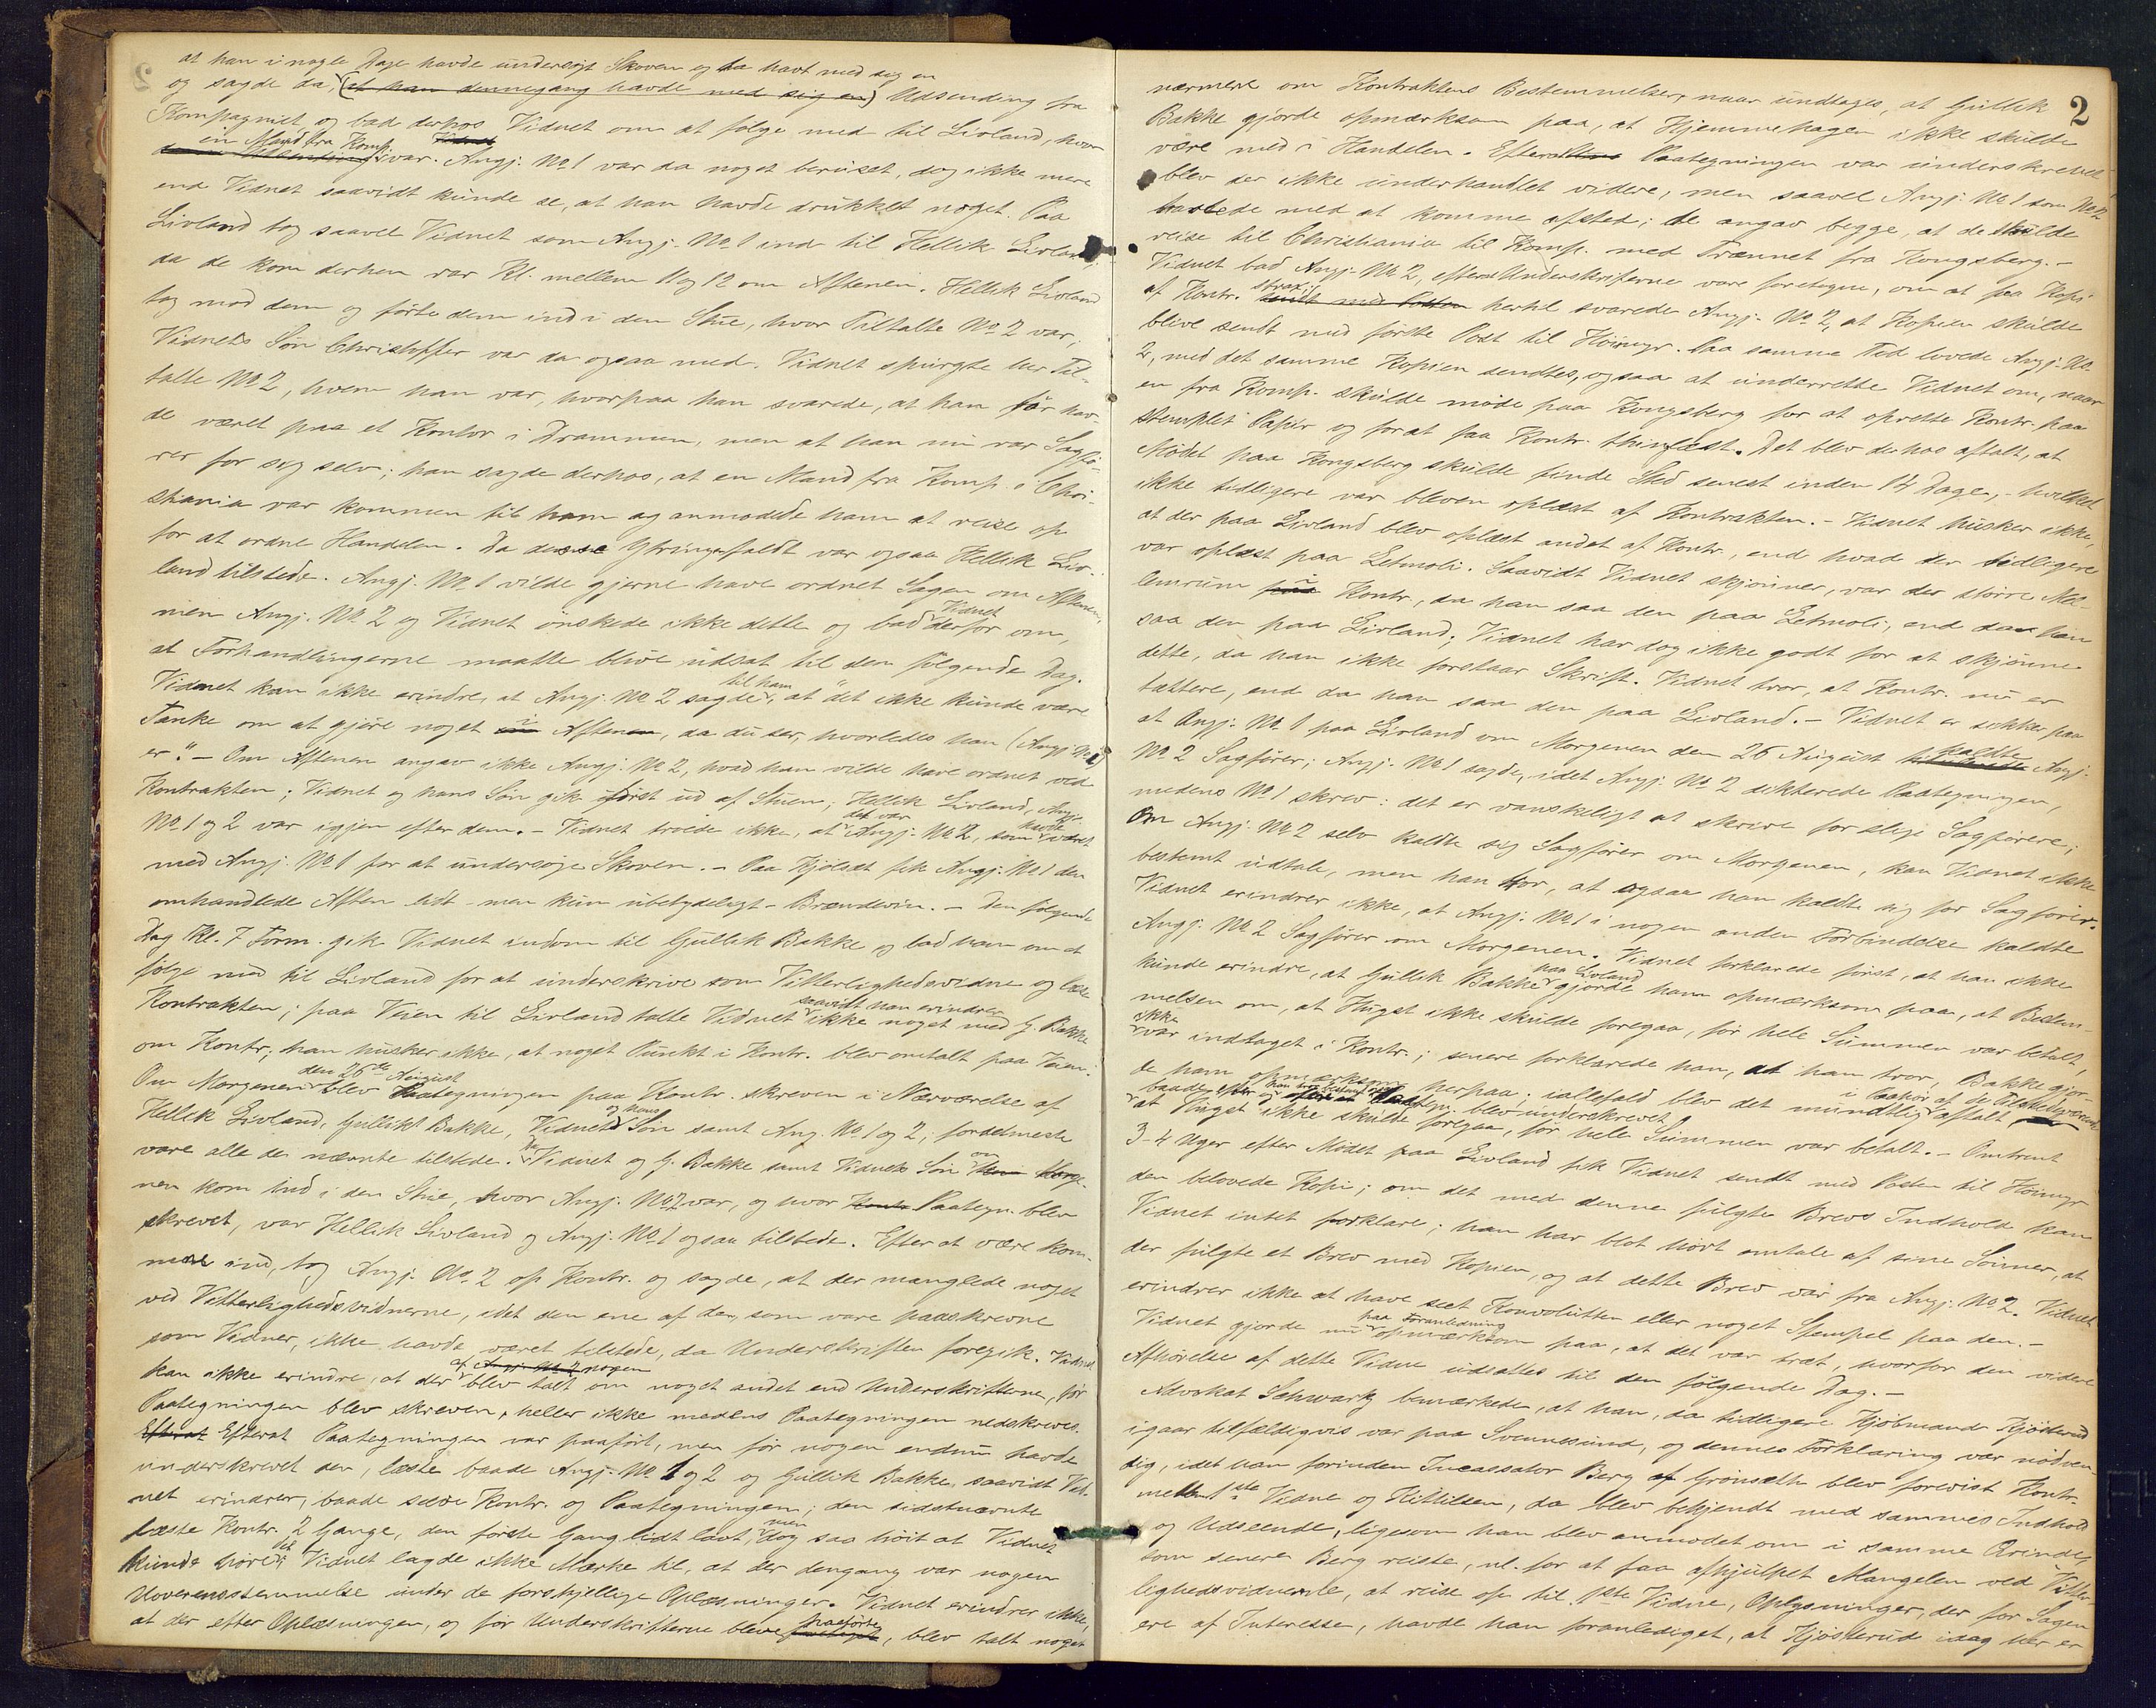 at han i nogle Dage havde undersøgt Skoven og da havt med sig en
og sagde da, (at han dennegang havde med sig en) Udsending fra
Kompagniet og bad derhos Vidnet om at følge med til Livland, hvor
en Mand fra Komp. var. Angj. No 1 var da noget beruset, dog ikke mere
end Vidnet saavidt kunde se, at han havde drukket noget. Paa
Livland tog saavel Vidnet som Angj. No. 1 ind til Hellik Livland;
da de kom derhen var Kl. mellem 11 og 12 om Aftenen. Hellik Livland
tog mod dem og førte dem ind i den Stue, hvor Tiltalte No 2 var;
Vidnets Søn Christoffer var da ogsaa med. Vidnet spurgte her Til-
talte No 2, hvem han var, hvorpaa han svarede, at han før hav-
de været paa et Kontor i Drammen, men at han nu var Sagfø-
rer for sig selv; han sagde derhos, at en Mand fra Komp. i Chri-
stiania var kommen til ham og anmodede ham at reise op
for at ordne Handelen. Da denne Yttring faldt var ogsaa Hellik Liv-
land tilstede. Angj. No. 1 vilde gjerne have ordnet Sagen om Aftenen,
men Angj. No. 2 og Vidnet ønskede ikke dette og bad Vidnet derfor om,
at Forhandlingerne maatte blive udsat til den følgende Dag.
Vidnet kan ikke erindre, at Angj. No 2 sagde til ham, at "det ikke kunde være
Tanke om at gjøre noget i Aften, da du ser, hvorledes han (Angj. No 1)
er". - Om Aftenen angav ikke Angj. No 2, hvad han vilde have ordnet ved
Kontrakten; Vidnet og hans Søn gik først ud af Stuen; Hellik Livland, Angj.
No. 1 og 2 var igjen efter dem. - Vidnet troede ikke, at det var Angj. No 2, som havde været
med Angj. No 1 for at undersøge Skoven. - Paa Kjølset fik Angj. No 1 den
omhandlede Aften lidt - men kun ubetydeligt - Brændevin. - Den følgende
Dag Kl. 7 Form. gik Vidnet indom til Gullik Bakke og bad ham om at
følge med til Livland for at underskrive som Vitterlighedsvidne og læse
Kontrakten; paa Veien til Livland talte Vidnet saavidt han erindrer ikke noget med G. Bakke
om Kontr.; han husker ikke, at noget Punkt i Kontr. blev omtalt paa Veien.
Om Morgenen den 26de August blev Paategningen paa Kontr. skreven i Nærværelse af
Hellik Livland, Gullik Bakke, Vidnet og hans Søn samt Ang. No 1 og 2; fordetmeste
vare alle de nævnte tilstede. Da Vidnet og G. Bakke samt Vidnets Søn om Morge-
nen kom ind i den Stue, hvor Angj. No 2 var, og hvor Paategn. blev
skrevet, var Hellik Livland og Angj. No. 1 ogsaa tilstede. Efter at være kom-
mene ind, tog Angj. No. 2 op Kontr. og sagde, at der manglede noget
ved Vitterlighedsvidnerne, idet den ene af dem, som vare paaskrevne
som Vidner, ikke havde været tilstede, da Underskriften foregik. Vidnet
kan ikke erindre, at der af nogen blev talt om noget andet end Underskrifterne, før
Paategningen blev skreven, heller ikke medens Paategningen nedskreves.
Efterat Efterat Paategningen var paaført, men før nogen endnu havde
underskrevet den, læste baade Angj. No. 1 og 2 og Gullik Bakke, saavidt Vid-
net erindrer, baade selve Kontr. og Paategningen; den sidstnævnte
læste Kontr. 2 Gange, den første Gang lidt lavt, men dog saa høit at Vidnet
kunde høre det; Vidnet lagde ikke Mærke til, at der dengang var nogen
Uoverensstemmelse under de forskjellige Oplæsninger. Vidnet erindrer ikke,
at der efter Oplæsningen, og før Underskrifterne bleve paaførte, blev talt noget
2
nærmere om Kontraktens Bestemmelser, naar undtages, at Gullik
Bakke gjorde opmærksom paa, at Hjemmehagen ikke skulde
være med i Handelen. Efterat Paategningen var underskrevet
blev der ikke underhandlet videre, men saavel Angj. No 1 som No 2
hastede med at komme afsted; de angav begge, at de skulde
reise til Christiania til Komp. med Trænnet fra Kongsberg. -
Vidnet bad Angj. No 2, efterat Underskrifterne vare foretagne, om at faa Kopi
af Kontr. strax; hertil svarede Angj. No. 2, at Kopien skulde
blive sendt med første Post til Høimyr. Paa samme Tid lovede Angj. No.
2, med det samme Kopien sendtes, ogsaa at underrette Vidnet om, naar
en fra Komp. skulde møde paa Kongsberg for at oprette Kontr. paa
stemplet Papir og forat faa Kontr. thinglæst. Det blev derhos aftalt, at
Mødet paa Kongsberg skulde finde Sted senest inden 14 Dage, - hvilket
ikke tidligere var bleven oplæst af Kontrakten. - Vidnet husker ikke,
at der paa Livland blev oplæst andet af Kontr., end hvad der tidligere
var oplæst paa Letmoli. Saavidt Vidnet skjønner, var der større Mel-
lemrum i Kontr., da han saa den paa Letmoli, end da han
saa den paa Livland; Vidnet har dog ikke godt for at skjønne
dette, da han ikke forstaar Skrift. Vidnet tror, at Kontr. nu er
tættere, end da han saa den paa Livland. - Vidnet er sikker paa
at Angj. No 1 paa Livland om Morgenen den 26 August kaldte Angj.
No. 2 Sagfører; Angj. No 1 sagde, idet Angj. No 2 dikterede Paategningen,
medens No. 1 skrev: det er vanskeligt at skrive for slige Sagførere;
Om Angj. No 2 selv kaldte sig Sagfører om Morgenen, kan Vidnet ikke
bestemt udtale, men han tror, at ogsaa han kaldte sig for Sagfører.
Vidnet erindrer ikke, at Angj. No 1 i nogen anden Forbindelse kaldte
Angj. No 2 Sagfører om Morgenen. Vidnet forklarede først, at han ikke
kunde erindre, at Gullik Bakke paa Livland gjorde ham opmærksom paa, at Bestem-
melsen om, at Hugst ikke skulde foregaa, før hele Summen var betalt,
ikke var indtaget i Kontr.; senere forklarede han, at han tror, Bakke gjor-
de ham opmærksom herpaa; iallefald blev det mundtlig i Paahør af de Tilstedeværende aftalt,
baade før og efter blev underskrevet
at Hugst ikke skulde foregaa, før hele Summen var betalt. - Omtrent
3-4 Uger efter Mødet paa Livland fik Vidnet sendt med Posten til Høimyr
den belovede Kopi; om det med denne fulgte Brevs Indhold kan
Vidnet intet forklare; han har blot hørt omtale af sine Sønner, at
der fulgte et Brev med Kopien, og at dette Brev var fra Angj. No. 2. Vidnet
erindrer ikke at have seet Konvolutten eller noget Stempel paa den. -
Vidnet gjorde nu paa Foranledning opmærksom paa, at det var træt, hvorfor den videre
Afhørelse af dette Vidne udsattes til den følgende Dag. -
Advokat Schwartz bemærkede, at han, da tidligere Kjøbmand Kjøsterud
igaar tilfældigvis var paa Svennesund, og dennes Forklaring var nødven-
dig, idet han forinden Incassator Berg af Grønsæth blev forevist Kontr.
mellem 1ste Vidne og Kittilsen, da blev bekjendt med sammes Indhold
og Udseende, ligesom han blev anmodet om i samme Ærinde,
som senere Berg reiste, nl. for at faa afhjulpet Mangelen ved Vitter-
lighedsvidnerne, at reise op til 1ste Vidne, Oplysninger, der for Sagen
ere af Interesse, havde han foranlediget, at Kjøsterud idag her er